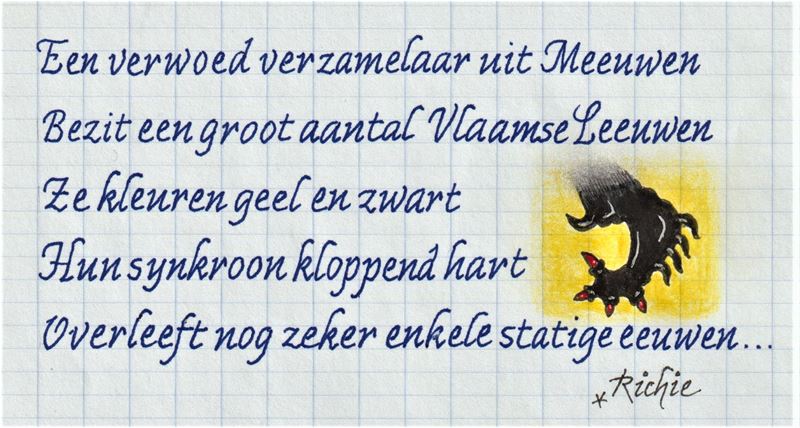 Een verwoed verzamelaar uit Meeuwen
Bezit een groot aantal Vlaamse Leeuwen
Ze kleuren geel en zwart
Hun synkroon kloppend hart
Overleeft nog zeker enkele statige eeuwen...
*Richie